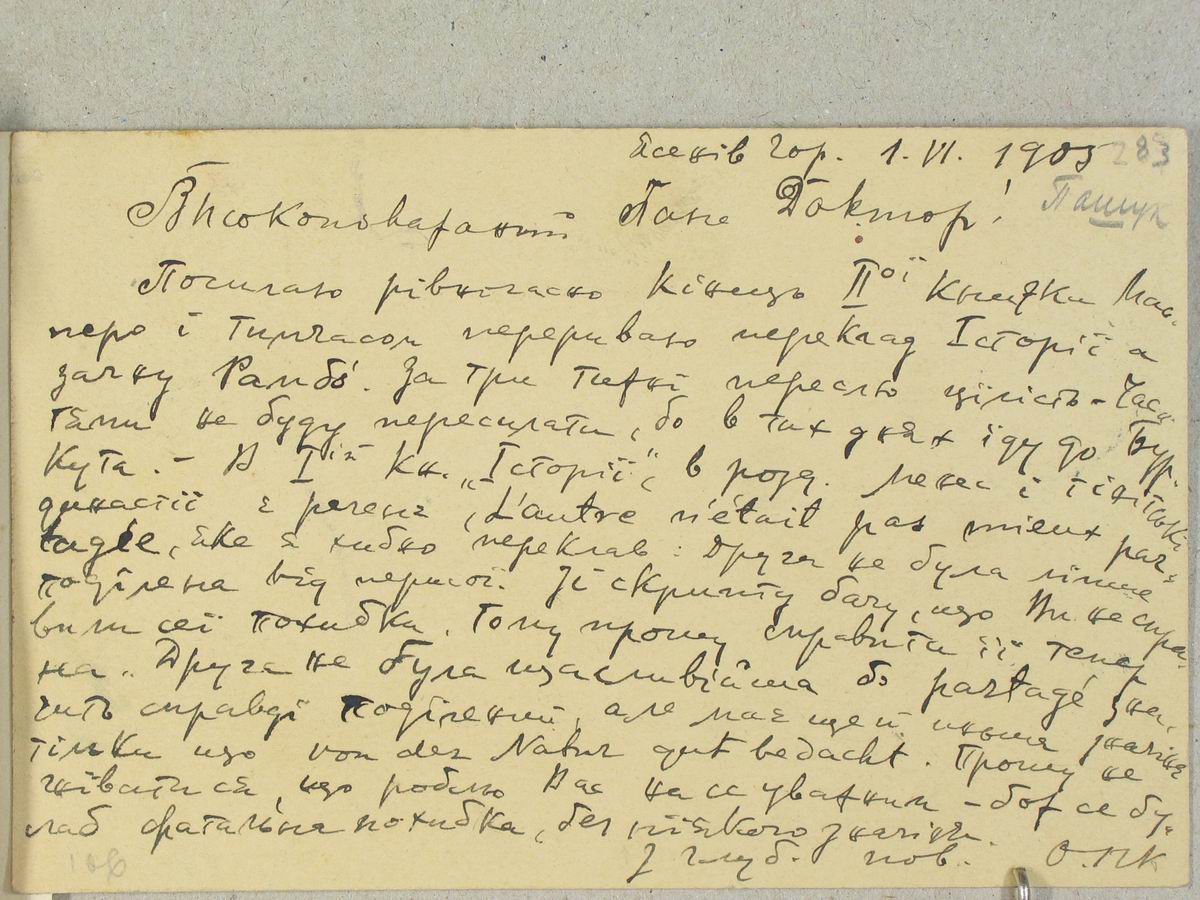 Ясенів гор. 1. VI. 1905 283
Пащук
Високоповажаний Пане Доктор!
Посилаю рівночасно кінець IIої книжки Мас-
перо і тимчасом перериваю переклад Історії а
зачну Рамбо. За три тижні перешлю цілість – Час-
тями не буду пересилати, бо в тих днях їду до Бур-
кута. – В Iій кн. „Історії“, в розд. Менес і тінітські
династії є речене „L'autre n'était pas mieux par-
tagée, яке я хибно переклав: Друга не була ліпше
поділена від першої. Зі скрипту бачу, що Ви не спра-
вили сеї похибки. Тому прошу справити її тепер
на: Друга не була щасливійша бо partagé зна-
чить справді поділений, але має ще й иньше значіне
тілько що von der Natur gut bedacht. Прошу не
гнівати ся, що роблю Вас на се уважним – бо ж се бу-
лаб фатальна похибка, без ніякого значіня.
З глуб. пов. О. ПК
106